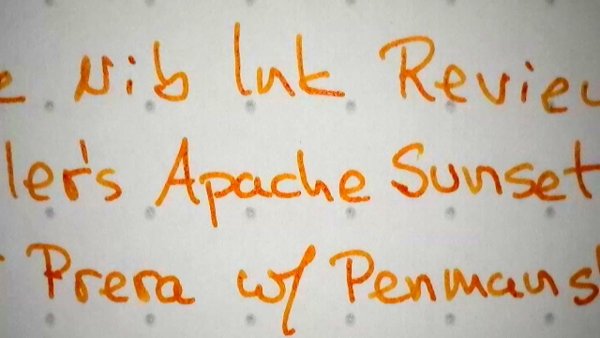 e Nib Ink Review
ler's Apache Sunset
Prera w/ Penmans